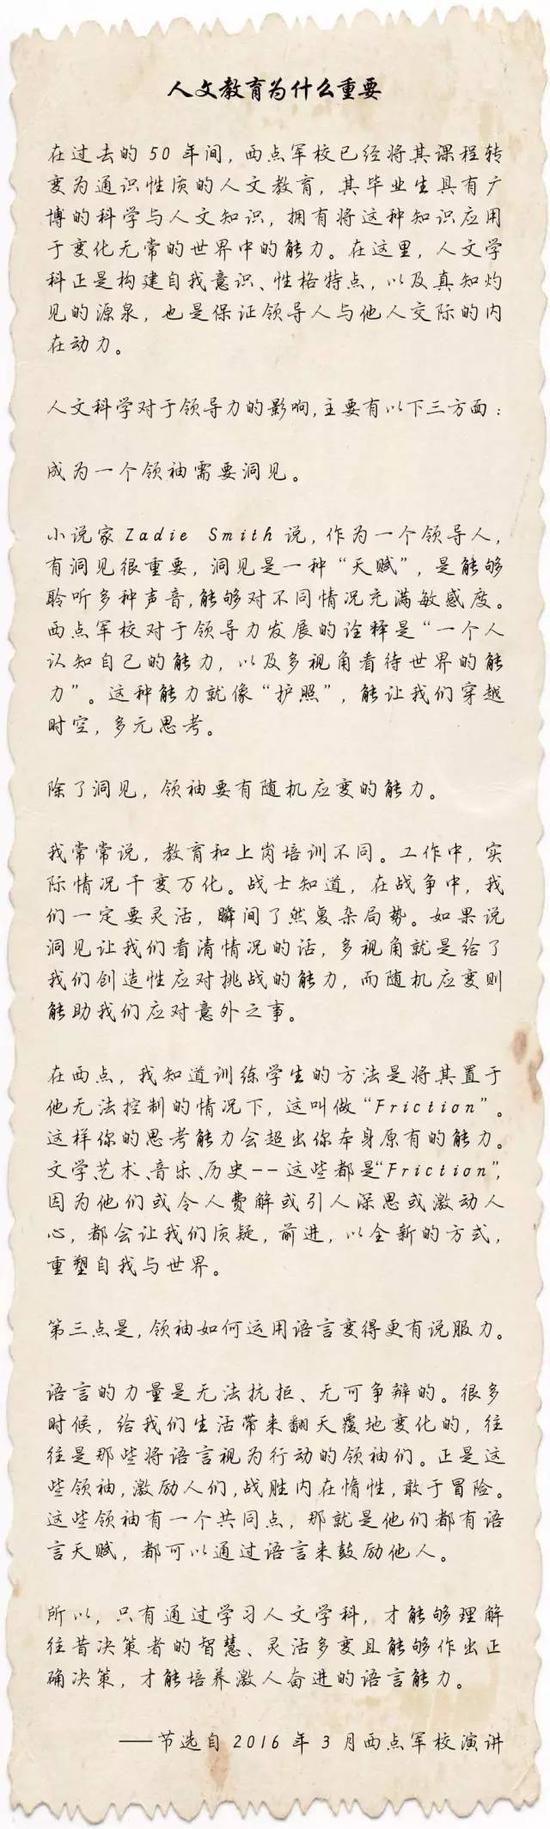 人文教育为什么重要
在过去的50年间，西点军校已经将其课程转
变为通识性质的人文教育，其毕业生具有广
博的科学与人文知识，拥有将这种知识应用
于变化无常的世界中的能力。在这里，人文学
科正是构建自我意识、性格特点，以及真知灼
见的源泉，也是保证领导人与他人交际的内
在动力。
人文科学对于领导力的影响,主要有以下三方面：
成为一个领袖需要洞见。
小说家Zadie Smith说，作为一个领导人，
有洞见很重要，洞见是一种“天赋”，是能够
聆听多种声音,能够对不同情况充满敏感度。
西点军校对于领导力发展的诠释是“一个人
认知自己的能力，以及多视角看待世界的能
力”。这种能力就像“护照”，能让我们穿越
时空，多元思考。
除了洞见，领袖要有随机应变的能力。
我常常说，教育和上岗培训不同。工作中，实
际情况千变万化。战士知道，在战争中，我
们一定要灵活，瞬间了然复杂局势。如果说
洞见让我们看清情况的话，多视角就是给了
我们创造性应对挑战的能力，而随机应变则
能助我们应对意外之事。
在西点，我知道训练学生的方法是将其置于
他无法控制的情况下，这叫做“Friction”。
这样你的思考能力会超出你本身原有的能力。
文学、艺术、音乐、历史--这些都是“Friction”，
因为他们或令人费解或引人深思或激动人
心，都会让我们质疑，前进，以全新的方式，
重塑自我与世界。
第三点是，领袖如何运用语言变得更有说服力。
语言的力量是无法抗拒、无可争辩的。很多
时候，给我们生活带来翻天覆地变化的，往
往是那些将语言视为行动的领袖们。正是这
些领袖,激励人们,战胜内在惰性,敢于冒险。
这些领袖有一个共同点，那就是他们都有语
言天赋，都可以通过语言来鼓励他人。
所以，只有通过学习人文学科，才能够理解
往昔决策者的智慧、灵活多变且能够作出正
确决策，才能培养激人奋进的语言能力。
——节选自2016年3月西点军校演讲